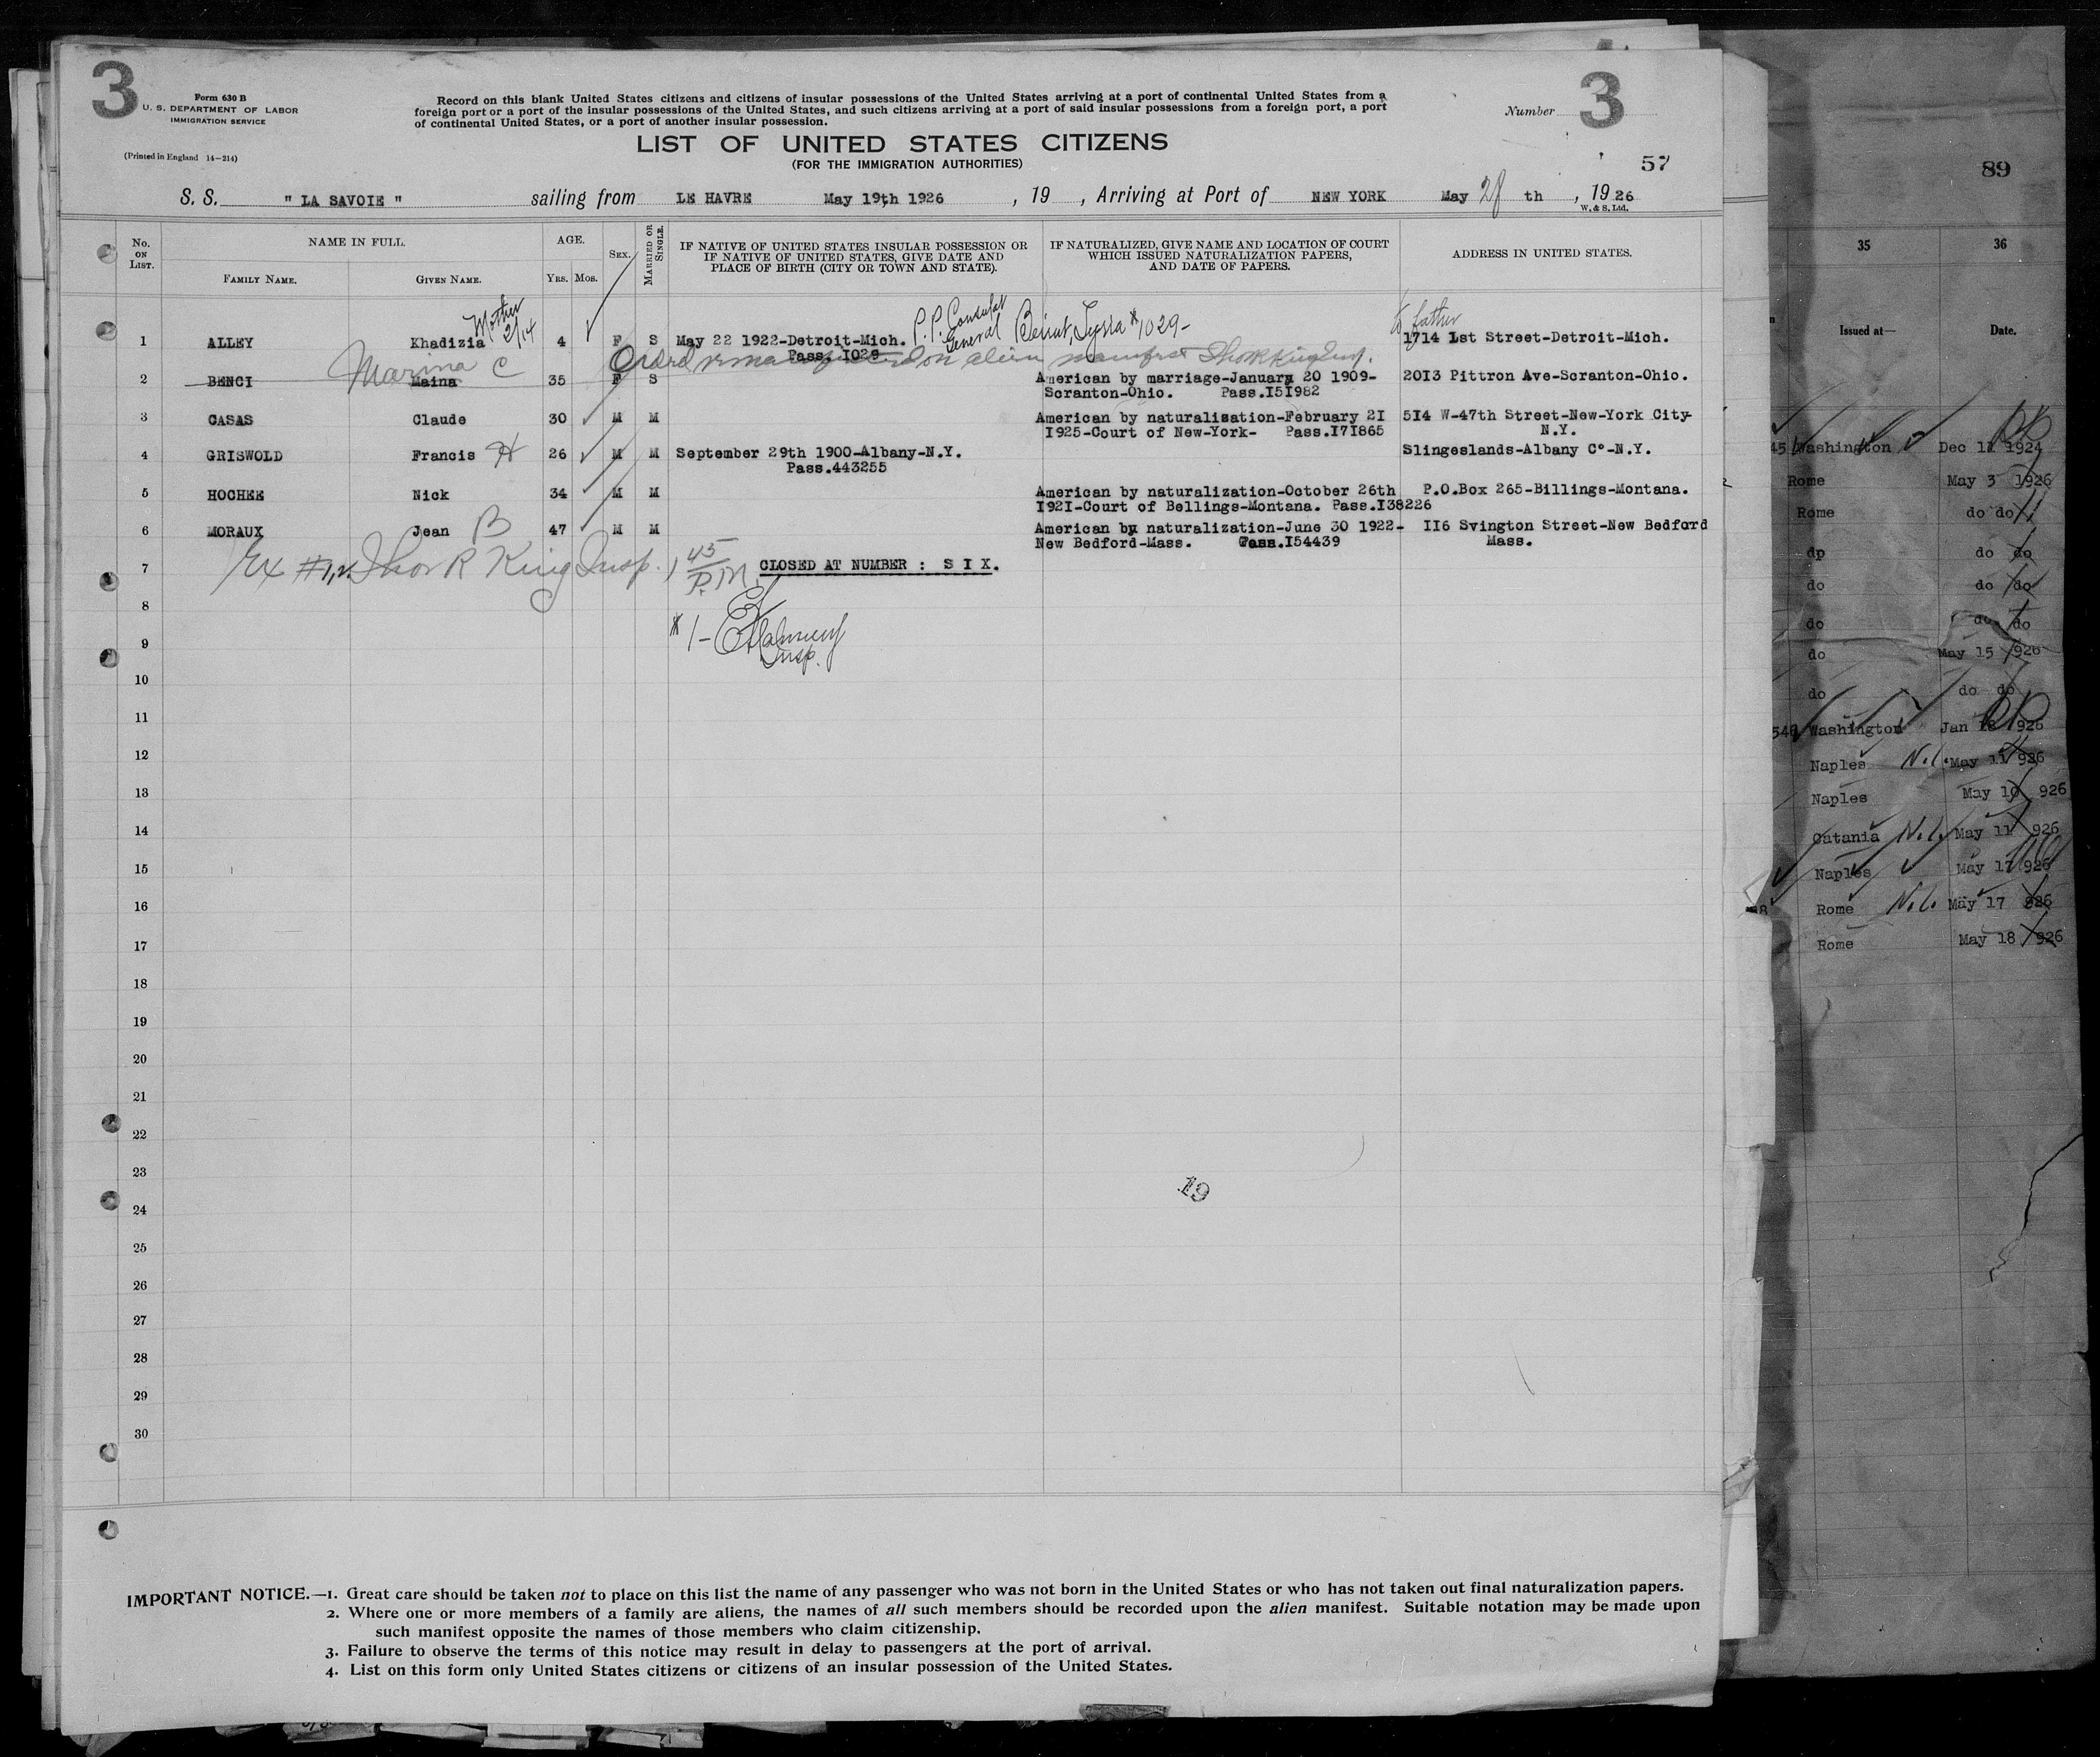 3
Form 630 B
U. S. DEPARTMENT OF LABOR
IMMIGRATION SERVICE
(Printed in England 14-214)
Record on this blank United States citizens and citizens of insular possessions of the United States arriving at a port of continental United States from a
foreign port or a port of the insular possessions of the United States, and such citizens arriving at a port of said insular possessions from a foreign port, a port
of continental United States, or a port of another insular possession.
Number 3
LIST OF UNITED STATES CITIZENS
(FOR THE IMMIGRATION AUTHORITIES)
57
S. S. " LA SAVOIE " sailing from LE HAVRE May 19th 1926 , 19 , Arriving at Port of NEW YORK May 28 th , 19 26
W. & S. Ltd.
No. ON LIST.
NAME IN FULL.
FAMILY NAME. GIVEN NAME.
AGE.
YRS. MOS.
SEX.
MARRIED OR SINGLE.
IF NATIVE OF UNITED STATES INSULAR POSSESSION OR
IF NATIVE OF UNITED STATES, GIVE DATE AND
PLACE OF BIRTH (CITY OR TOWN AND STATE).
IF NATURALIZED, GIVE NAME AND LOCATION OF COURT
WHICH ISSUED NATURALIZATION PAPERS,
AND DATE OF PAPERS.
ADDRESS IN UNITED STATES.
Mother 2/14
P.P. Consulat General Beirut, Syria #1029-
to father
1 ALLEY Khadizia 4 F S May 22 1922-Detroit-Mich. 1714 1st Street-Detroit-Mich.
Pass. 1029
Marina C
on alien manifest Thor R King Insp.
2 BENCI Maina 35 F S American by marriage-January 20 1909- 2013 Pittron Ave-Scranton-Ohio.
Scranton-Ohio. Pass.I51982
3 CASAS Claude 30 M M American by naturalisation-February 2I 5I4 W-47th Street-New-York City-
I925-Court of New-York- Pass.I71865 N.Y.
4 GRISWOLD Francis H 26 M M September 29th 1900-Albany-N.Y. Slingeslands-Albany C°-N.Y.
Pass.443255
5 HOCHEE Nick 34 M M American by naturalization-October 26th P.O.Box 265-Billings-Montana.
I92I-Court of Bellings-Montana. Pass.I38226
6 MORAUX Jean B 47 M M American by naturalization-June 30 1922- II6 Svington Street-New Bedford
New Bedford-Mass. Pass.I54439 Mass.
7 Ex #1,2. Thor R King Insp. 1 45 P.M. CLOSED AT NUMBER : S I X.
8
#1-
Insp.
9
10
11
12
13
14
15
16
17
18
19
20
21
22
23
19
24
25
26
27
28
29
30
IMPORTANT NOTICE.—1. Great care should be taken not to place on this list the name of any passenger who was not born in the United States or who has not taken out final naturalization papers.
2. Where one or more members of a family are aliens, the names of all such members should be recorded upon the alien manifest. Suitable notation may be made upon
such manifest opposite the names of those members who claim citizenship.
3. Failure to observe the terms of this notice may result in delay to passengers at the port of arrival.
4. List on this form only United States citizens or citizens of an insular possession of the United States.
89
35 36
Issued at— Date.
45 Washington Dec 11 1924
Rome May 3 1926
Rome do do
dp do do
do do do
do do do
do May 15 926
do do do
546 Washington Jan 18 926
Naples N.I. May 11 926
Naples May 10 926
Catania N.I. May 11 926
Naples May 17 926
Rome N.I. May 17 926
Rome May 18 926